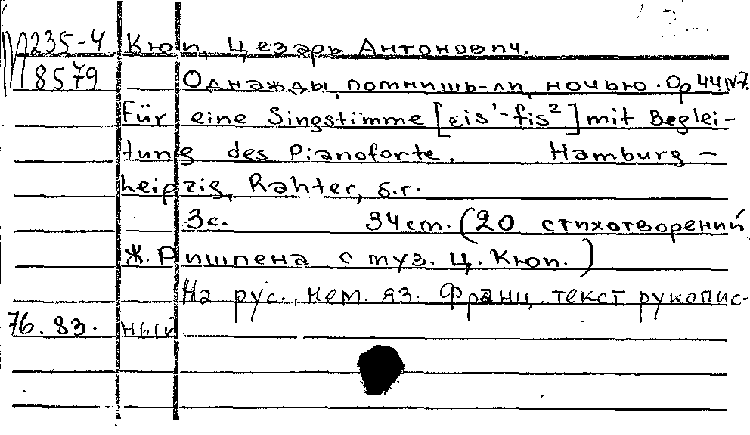 М235-4 Кюи, Цезарь Антонович.
8579 Однажды, помнишь-ли, ночью. Op 44 N7.
Für eine Singstimme [eis¹-fis²] mit Beglei-
tung des Pianoforte. Hamburg -
Leipzig, Rahter, б.г.
3с. 34 cm. (20 стихотворений
Ж. Ришпена с муз. Ц. Кюи.)
На рус., нем. яз. Франц. текст рукопис-
76.83. ный